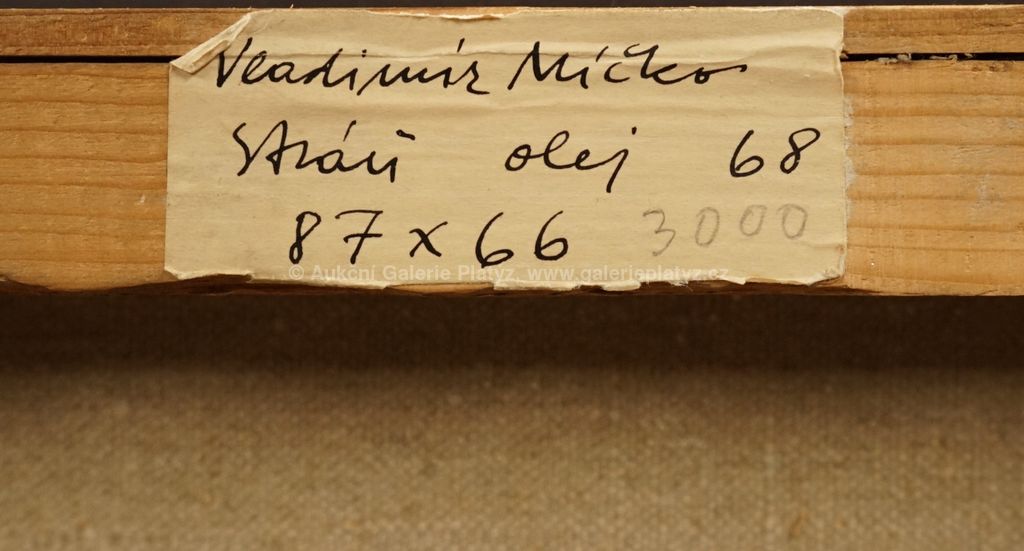 Vladimír Míčko
Stráň olej 68
87 x 66 3000
© Aukční Galerie Platýz, www.galerieplatyz.cz